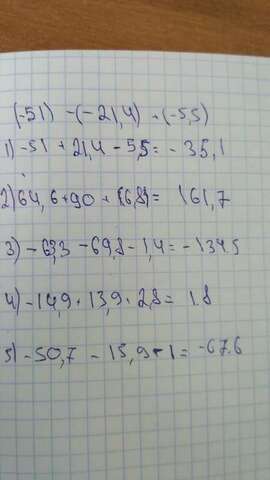 (-51) - (-21,4) + (-5,5)
1) -51 + 21,4 - 5,5 = - 35,1
2) 64,6 + 90 + = 161,7
3) - 63,3 - 69,8 - 1,4 = - 134,5
4) - 14,9 + 13,9 + 2,8 = 1,8
5) - 50,7 - 15,9 - 1 = -67,6